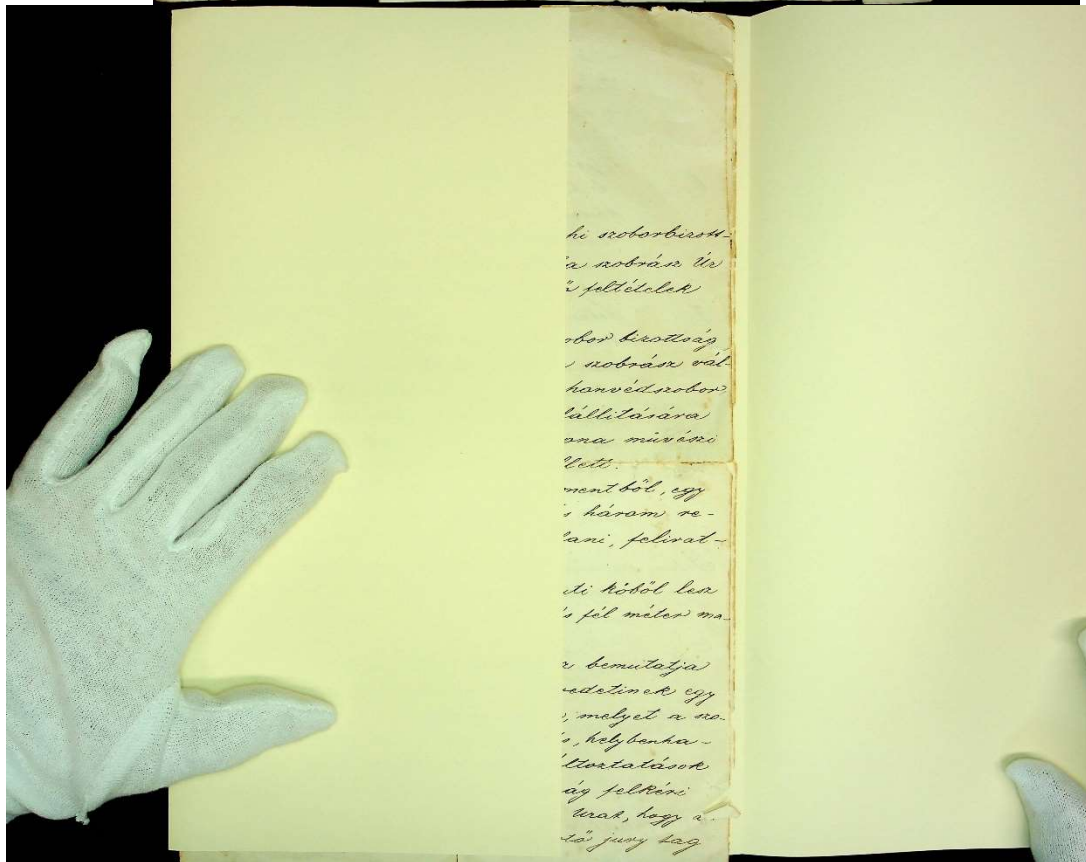 hi szoborbizott-
a szobrász Úr
feltételek
obor bizottság
szobrász vál-
honvédszobor
állitására
ona müvészi
lett.
mentből, egy
s három re-
ani, felirat-
ti kőből lesz
s fél méter ma-
bemutatja
edetinek egy
melyet a szo-
helybenha-
ltoztatások
ág felkéri
Urat, hogy a
tő jury tag